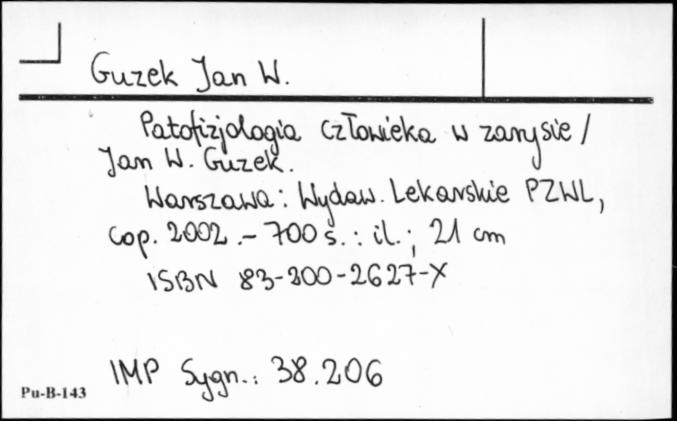 Guzek Jan W.
Patofizjologia człowieka w zarysie /
Jan W. Guzek.
Warszawa: Wydaw. Lekarskie PZWL,
cop. 2002. - 700 s. : il. ; 21 cm
ISBN 83-200-2627-X
IMP Sygn.: 38.206
Pu-B-143